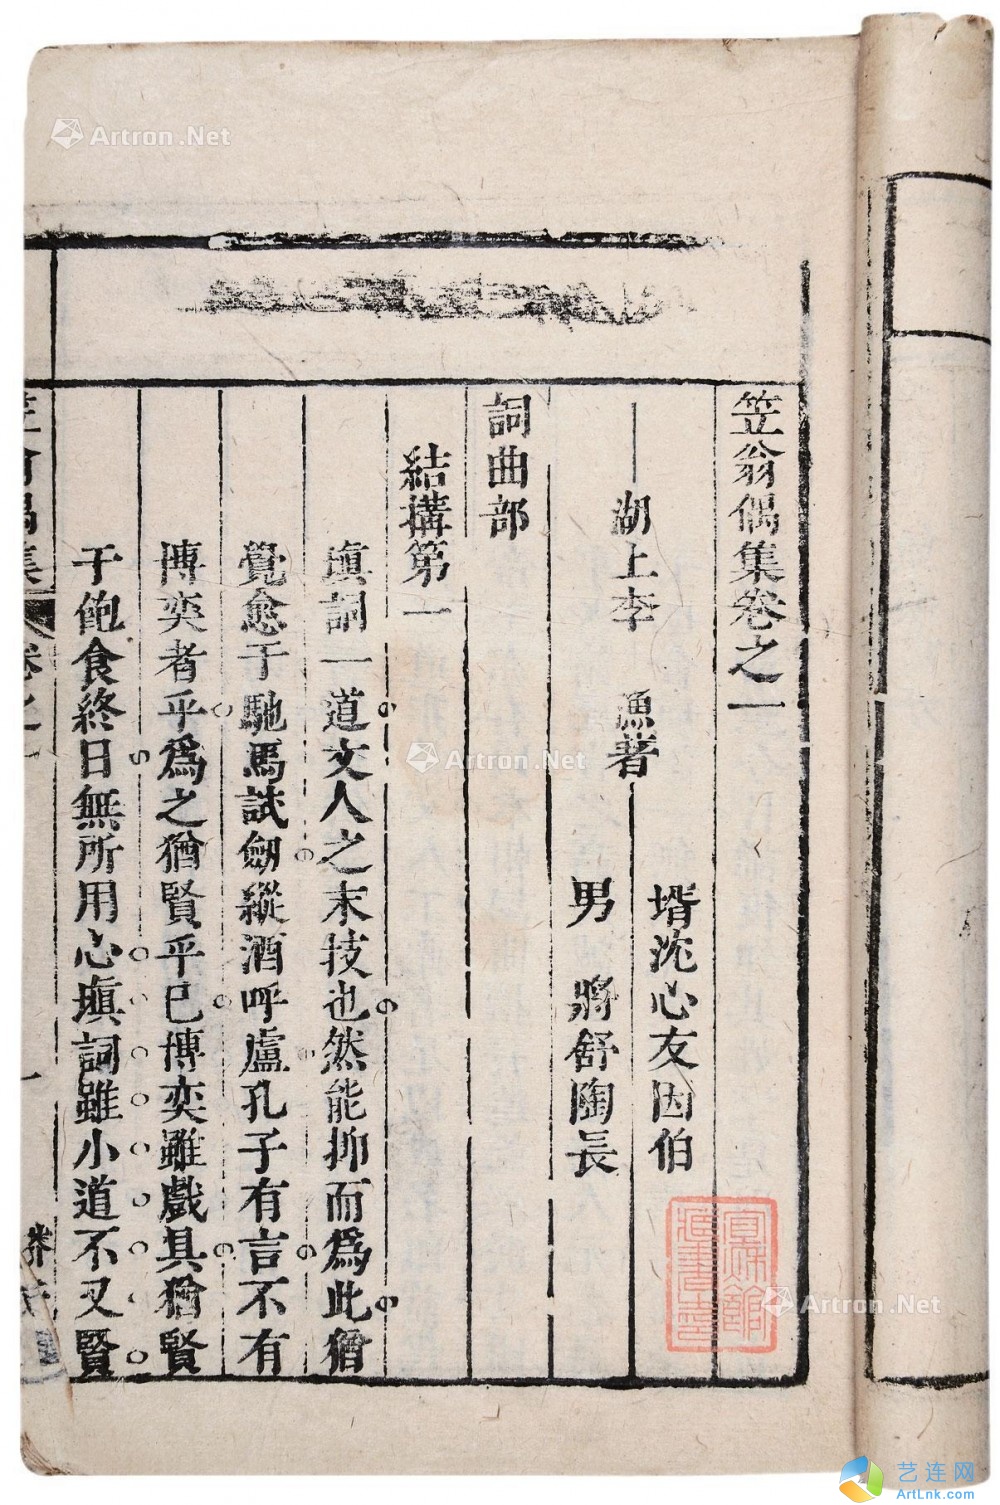 笠翁偶集卷之一
湖上李漁著
壻沈心友因伯
男將舒陶長
詞曲部
結構第一
塡詞一道文人之末技也然能抑而爲此猶
覺愈于馳馬試劍縱酒呼盧孔子有言不有
博奕者乎爲之猶賢乎已博奕雖戲具猶賢
于飽食終日無所用心塡詞雖小道不又賢
卷之一
一
Artron.Net
Artron.Net
Artron.Net
艺连网
ArtLnk.com